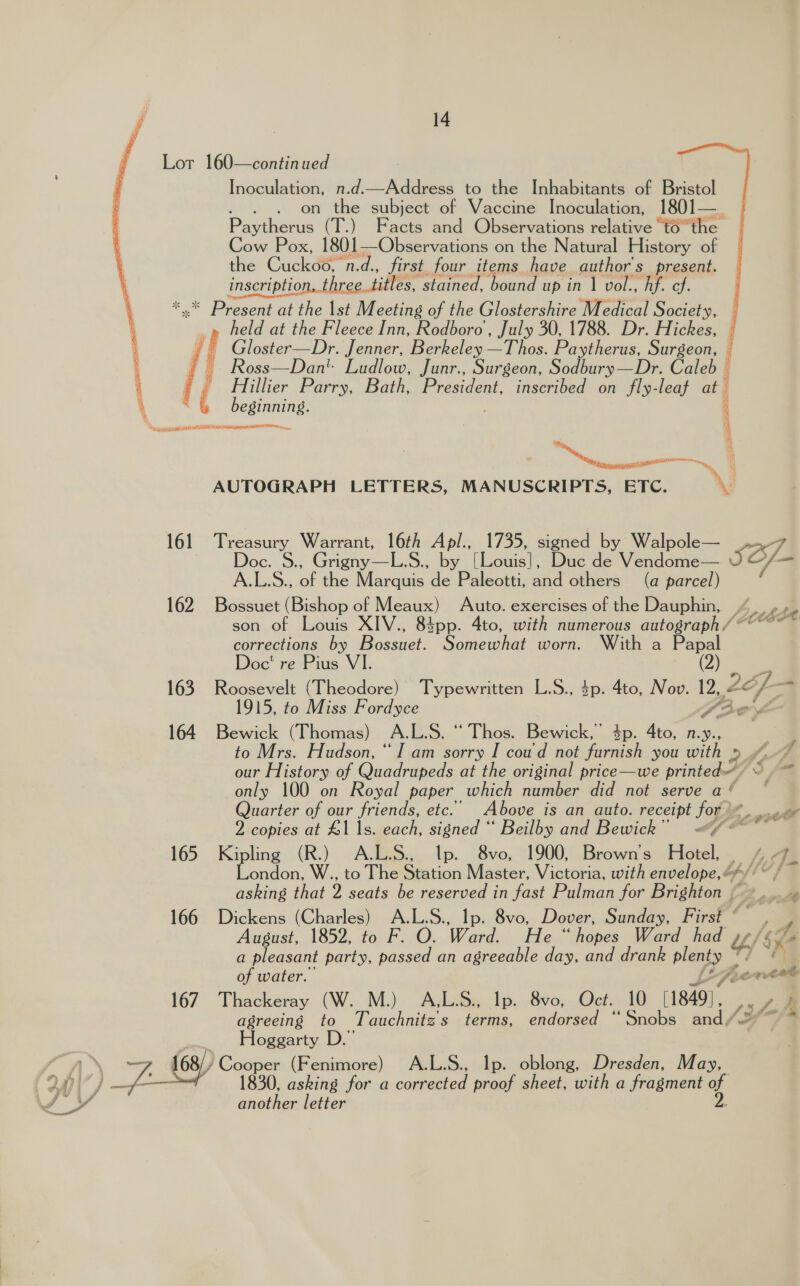 14
Lot 160—continued
Inoculation, n.d.—Address to the Inhabitants of Bristol
. . . on the subject of Vaccine Inoculation, 1801—
Paytherus (T.) Facts and Observations relative to the
Cow Pox, 1801—Observations on the Natural History of
the Cuckoo, n.d., first four items have author's present.
inscription, three titles, stained, bound up in 1 vol., hf. cf.
*** Present at the 1st Meeting of the Glostershire Medical Society,
held at the Fleece Inn, Rodboro', July 30, 1788. Dr. Hickes,
Gloster—Dr. Jenner, Berkeley—Thos. Paytherus, Surgeon,
Ross—Danl. Ludlow, Junr., Surgeon, Sodbury—Dr. Caleb
Hillier Parry, Bath, President, inscribed on fly-leaf at
beginning.
AUTOGRAPH LETTERS, MANUSCRIPTS, ETC.
161 Treasury Warrant, 16th Apl., 1735, signed by Walpole—
Doc. S., Grigny—L.S., by [Louis], Duc de Vendome—
A.L.S., of the Marquis de Paleotti, and others (a parcel)
162 Bossuet (Bishop of Meaux) Auto. exercises of the Dauphin,
son of Louis XIV., 8½pp. 4to, with numerous autograph
corrections by Bossuet. Somewhat worn. With a Papal
Doct re Pius VI. (2)
163 Roosevelt (Theodore) Typewritten L.S., ½p. 4to, Nov. 12, 20/-
1915, to Miss Fordyce
164 Bewick (Thomas) A.L.S. "Thos. Bewick," ½p. 4to, n.y.,
to Mrs. Hudson, "I am sorry I cou'd not furnish you with
our History of Quadrupeds at the original price—we printed
only 100 on Royal paper which number did not serve a
Quarter of our friends, etc." Above is an auto. receipt for
2 copies at £1 1s. each, signed "Beilby and Bewick"
165 Kipling (R.) A.L.S., 1p. 8vo, 1900, Brown's Hotel,
London, W., to The Station Master, Victoria, with envelope,
asking that 2 seats be reserved in fast Pulman for Brighton
166 Dickens (Charles) A.L.S., 1p. 8vo, Dover, Sunday, First
August, 1852, to F. O. Ward. He "hopes Ward had
a pleasant party, passed an agreeable day, and drank plenty
of water."
167 Thackeray (W. M.) A.L.S., 1p. 8vo, Oct. 10 [1849],
agreeing to Tauchnitz's terms, endorsed "Snobs and
Hoggarty D."
168 Cooper (Fenimore) A.L.S., 1p. oblong, Dresden, May,
1830, asking for a corrected proof sheet, with a fragment of
another letter 2.